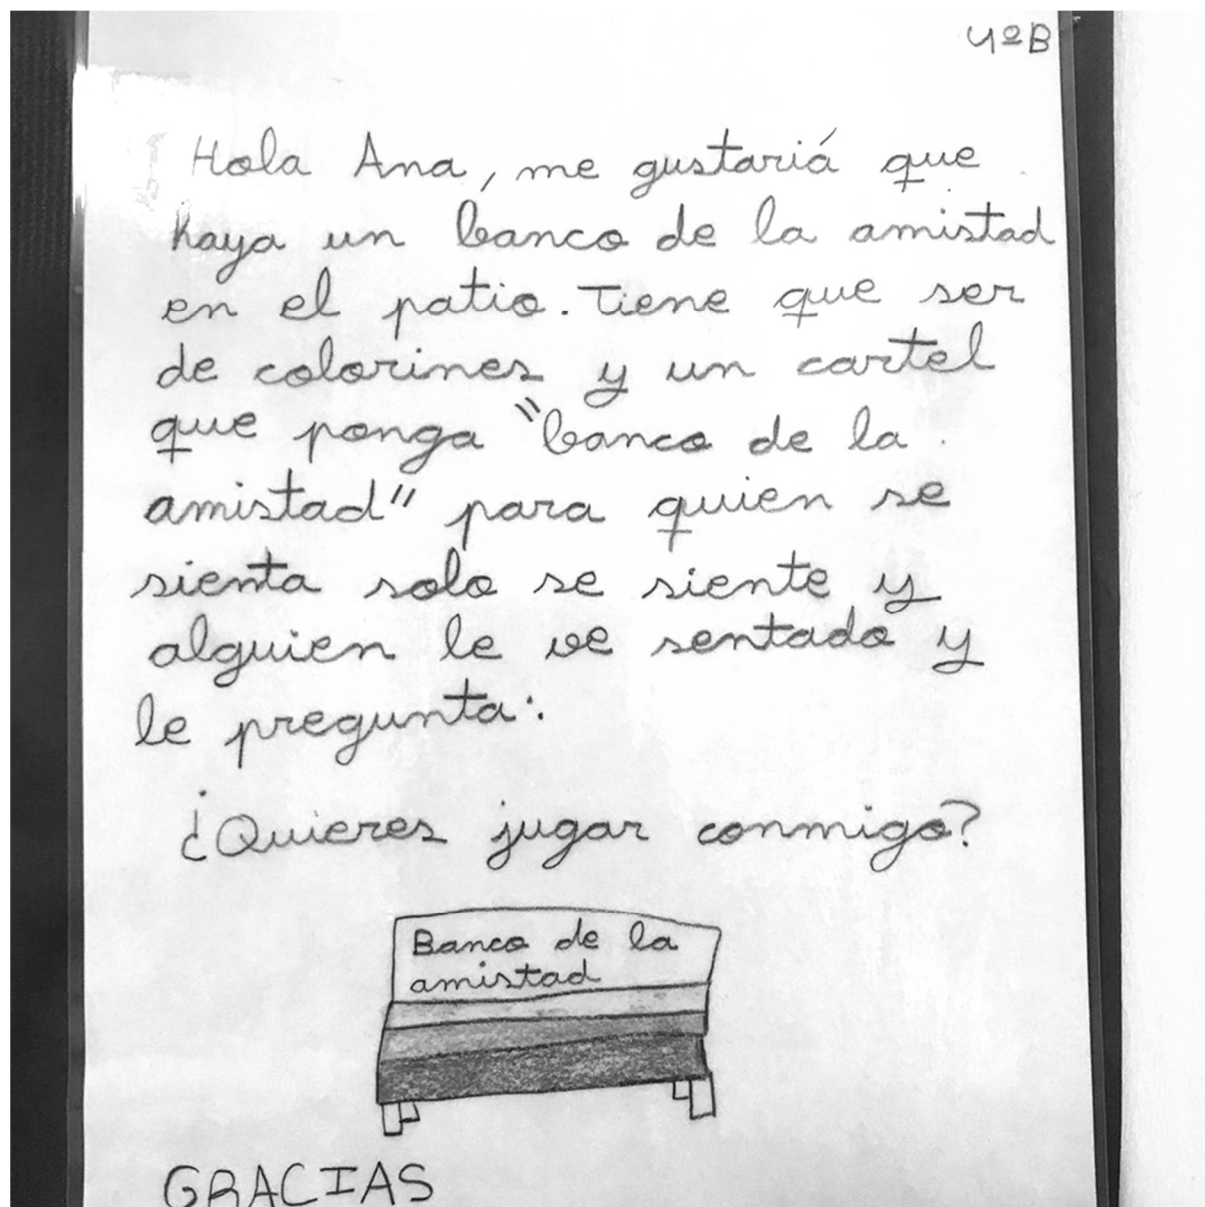 4ºB
Hola Ana, me gustariá que
haya un banco de la amistad
en el patio. Tiene que ser
de colorines y un cartel
que ponga "banco de la
amistad" para quien se
sienta solo se siente y
alguien le ve sentado y
le pregunta:
¿Quieres jugar conmigo?
Banco de la
amistad
GRACIAS